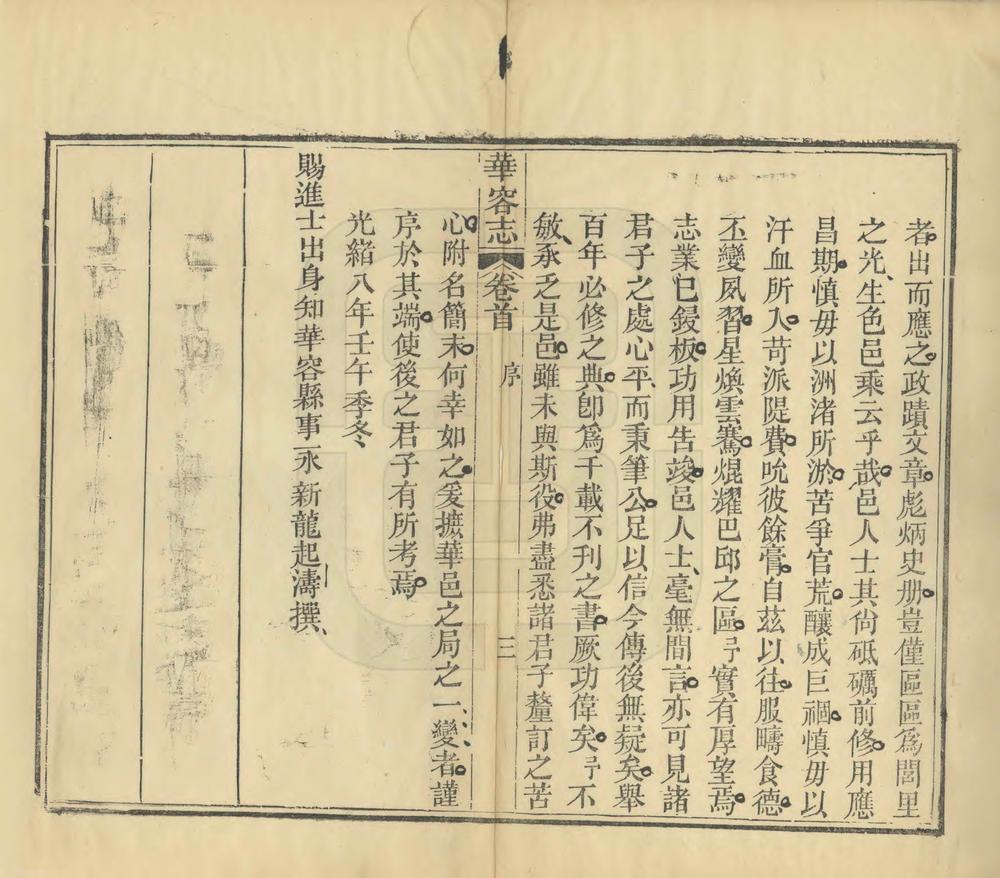 者出而應之政蹟文章彪炳史册豈僅區區爲閭里
之光生色邑乘云乎哉邑人士其尙砥礪前修用應
昌期愼毋以洲渚所淤苦爭官荒釀成巨禍愼毋以
汗血所入苛派隄費吮彼餘膏自茲以往服疇食德
丕變風習星煥雲騫焜耀巴邱之區予實有厚望焉
志業已鋟板功用告竣邑人士毫無間言亦可見諸
君子之處心平而秉筆公足以信今傳後無疑矣舉
百年必修之典卽爲千載不刋之書厥功偉矣予不
敏承乏是邑雖未與斯役弗盡悉諸君子釐訂之苦
華容志 卷首 序 三
心附名簡末何幸如之爰摭華邑之局之一變者謹
序於其端使後之君子有所考焉
光緖八年壬午季冬
賜進士出身知華容縣事永新龍起濤撰